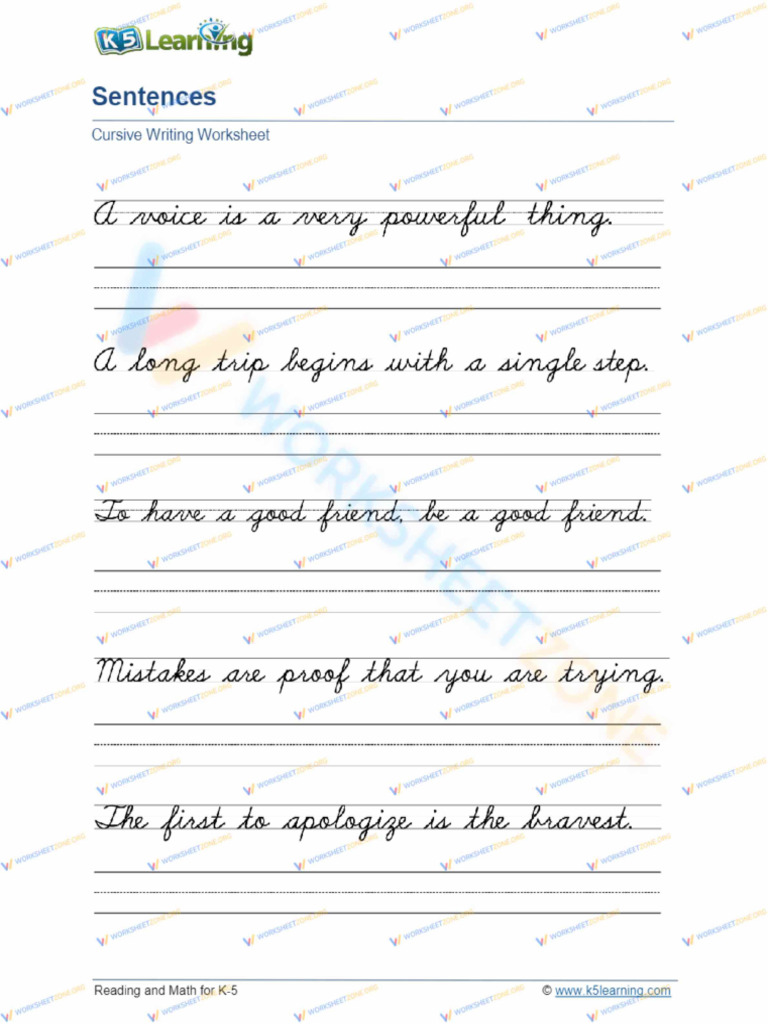 K5 Learning
Sentences
Cursive Writing Worksheet
A voice is a very powerful thing.
A long trip begins with a single step.
To have a good friend, be a good friend.
Mistakes are proof that you are trying.
The first to apologize is the bravest.
WORKSHEETZONE
Reading and Math for K-5
© www.k5learning.com
WORKSHEETZONE.ORG